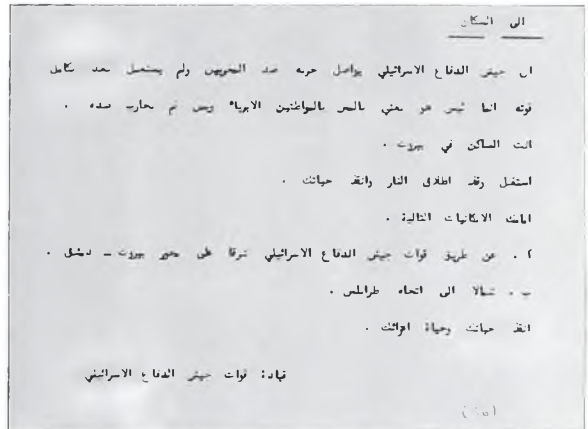 الى السكان
ان جيش الدفاع الاسرائيلي يواصل حربه ضد المخربين ولم يستعمل بعد كامل
قوته انما ليس هو معني بالمس بالمواطنين الابرياء ومن لم يحارب ضده .
انت الساكن في بيروت .
استغل وقف اطلاق النار وانقذ حياتك .
امامك الامكانيات التالية .
أ . عن طريق قوات جيش الدفاع الاسرائيلي شرقا على محور بيروت - دمشق .
ب . شمالا الى اتجاه طرابلس .
انقذ حياتك وحياة اعزائك .
قيادة قوات جيش الدفاع الاسرائيلي